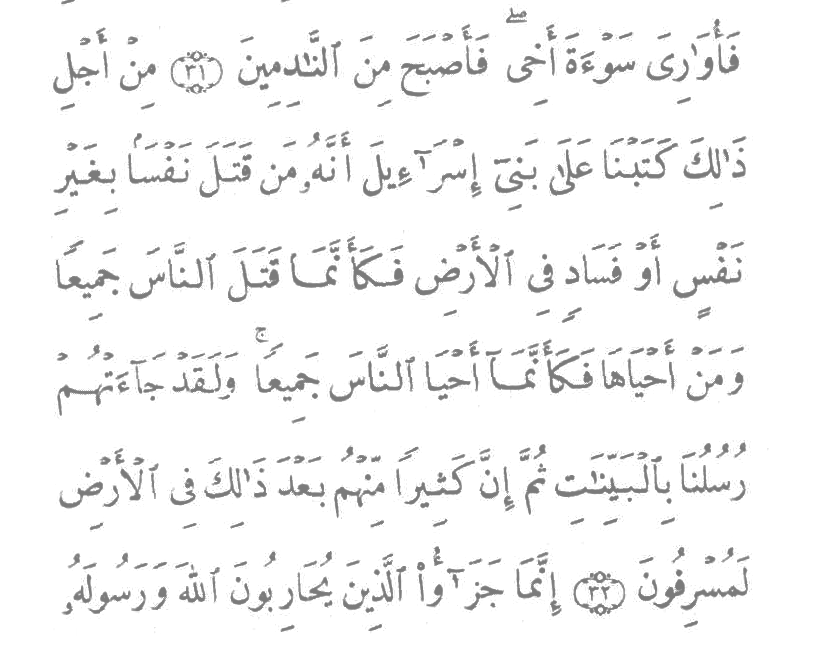 فَأُوَٰرِىَ سَوْءَةَ أَخِى ۖ فَأَصْبَحَ مِنَ ٱلنَّـٰدِمِينَ ﴿٣١﴾ مِنْ أَجْلِ
ذَٰلِكَ كَتَبْنَا عَلَىٰ بَنِىٓ إِسْرَٰٓءِيلَ أَنَّهُۥ مَن قَتَلَ نَفْسًۢا بِغَيْرِ
نَفْسٍ أَوْ فَسَادٍ فِى ٱلْأَرْضِ فَكَأَنَّمَا قَتَلَ ٱلنَّاسَ جَمِيعًا
وَمَنْ أَحْيَاهَا فَكَأَنَّمَآ أَحْيَا ٱلنَّاسَ جَمِيعًا ۚ وَلَقَدْ جَآءَتْهُمْ
رُسُلُنَا بِٱلْبَيِّنَـٰتِ ثُمَّ إِنَّ كَثِيرًا مِّنْهُم بَعْدَ ذَٰلِكَ فِى ٱلْأَرْضِ
لَمُسْرِفُونَ ﴿٣٢﴾ إِنَّمَا جَزَٰٓؤُا۟ ٱلَّذِينَ يُحَارِبُونَ ٱللَّهَ وَرَسُولَهُۥ